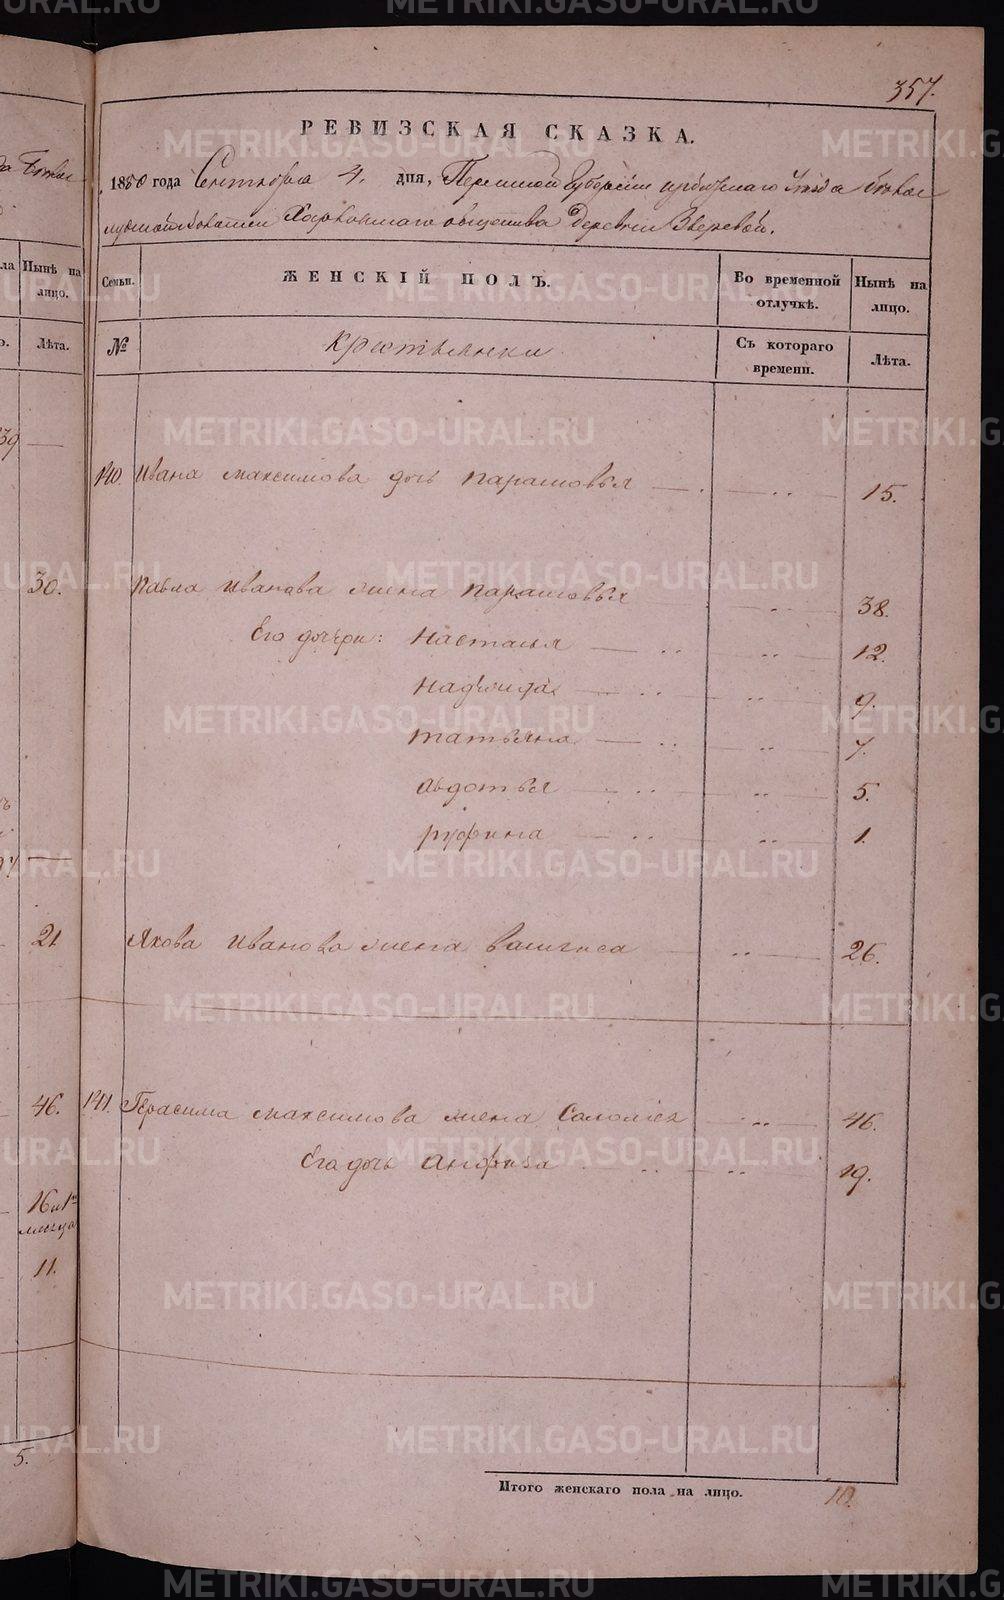 357.
РЕВИЗСКАЯ СКАЗКА.
1850 года Сентября 4. дня, Пермской Губернии Ирбитскаго Уезда
Харловскаго общества Деревни Зверевой.
Семьи.
ЖЕНСКІЙ ПОЛЪ.
Во временной отлучкѣ.
Нынѣ на лицо.
№
Крестьянки
Съ котораго времени.
Лѣта.
140. Ивана Максимова дочь Парасковья 15.
Павла Иванова жена Парасковья 38.
Его дочери: Настасья 12.
Надежда 9.
Татьяна 7.
Авдотья 5.
Руфина 1.
Якова Иванова жена Василиса 26.
141. Герасима Максимова жена Соломея 46.
Его дочь Анфиза 19.
Итого женскаго пола на лицо. 10.
Нынѣ на лицо.
Лѣта.
39
30.
21
46.
11.
5.
METRIKI.GASO-URAL.RU